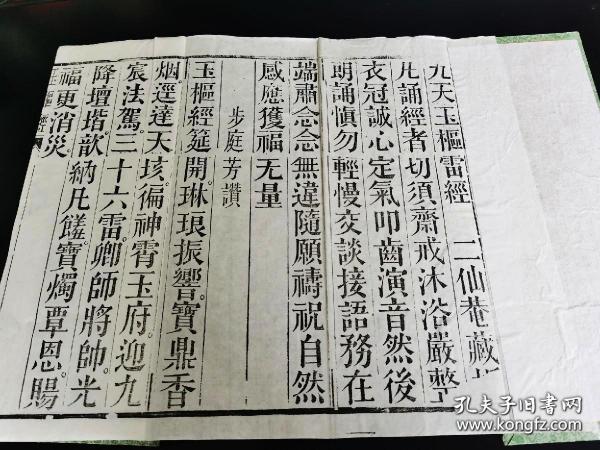 九天玉樞雷經 二仙菴藏
凡誦經者切須齋戒沐浴嚴整
衣冠誠心定氣叩齒演音然後
朗誦慎勿輕慢交談接語務在
端肅念念無違隨願禱祝自然
感應獲福无量
步庭芳讚
玉樞經筵開。琳琅振響。寶鼎香
烟逕達天垓。徧神霄玉府。迎九
宸法駕。三十六雷。卿師將帥。光
降壇堦。歆納凡饈。寶燭覃恩。賜
福更消災
孔夫子旧书网
www.kongfz.com